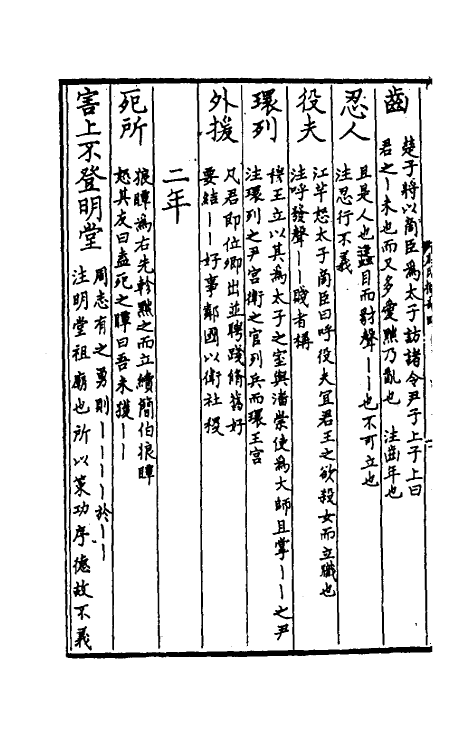 齒
楚子將以商臣爲太子訪諸令尹子上子上曰
君之｜未也而又多愛黜乃亂也　注齒年也
忍人
且是人也蠭目而豺聲｜｜也不可立也
注忍行不義
役夫
江芊怒太子商臣曰呼役夫宜君王之欲殺女而立職也
注呼發聲｜｜賤者稱
環列
穆王立以其爲太子之室與潘崇使爲大師且掌｜｜之尹
注環列之尹宮衛之官列兵而環王宮
外援
凡君即位卿出並聘踐脩舊好
要結｜｜好事鄰國以衛社稷
二年
死所
狼瞫爲右先軫黜之而立續簡伯狼瞫
怒其友曰盍死之瞫曰吾未獲｜｜
害上不登明堂
周志有之勇則｜｜｜｜於｜｜
注明堂祖廟也所以策功序德故不義